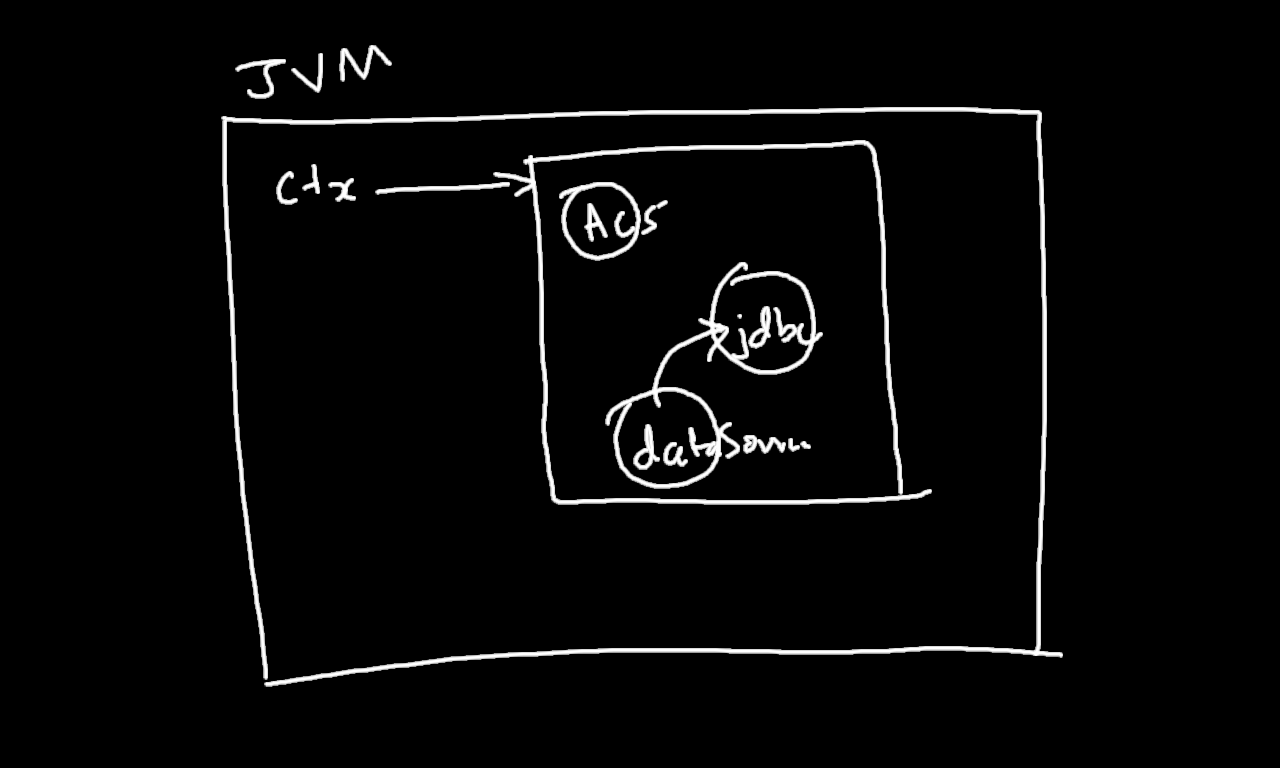 JVM
ctx
ACS
jdbc
dataSource